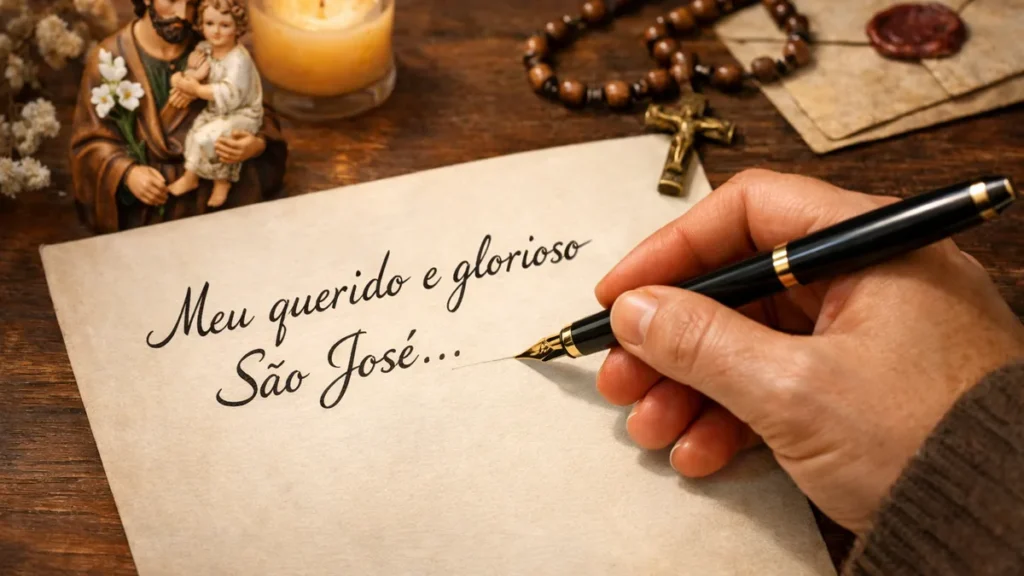 Meu querido e glorioso
São José...